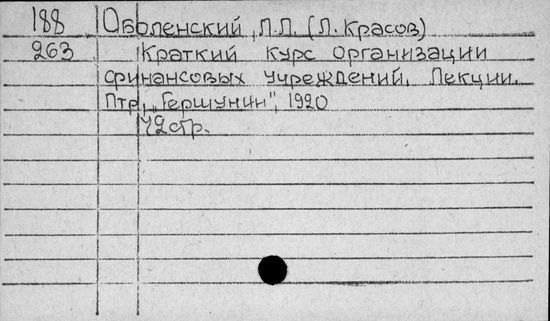 188 Оболенский, Л.Л. (Л. Красов)
263 Краткий курс организации
финансовых учреждений. Лекции.
Птр, "Гершунин", 1920
72 стр.